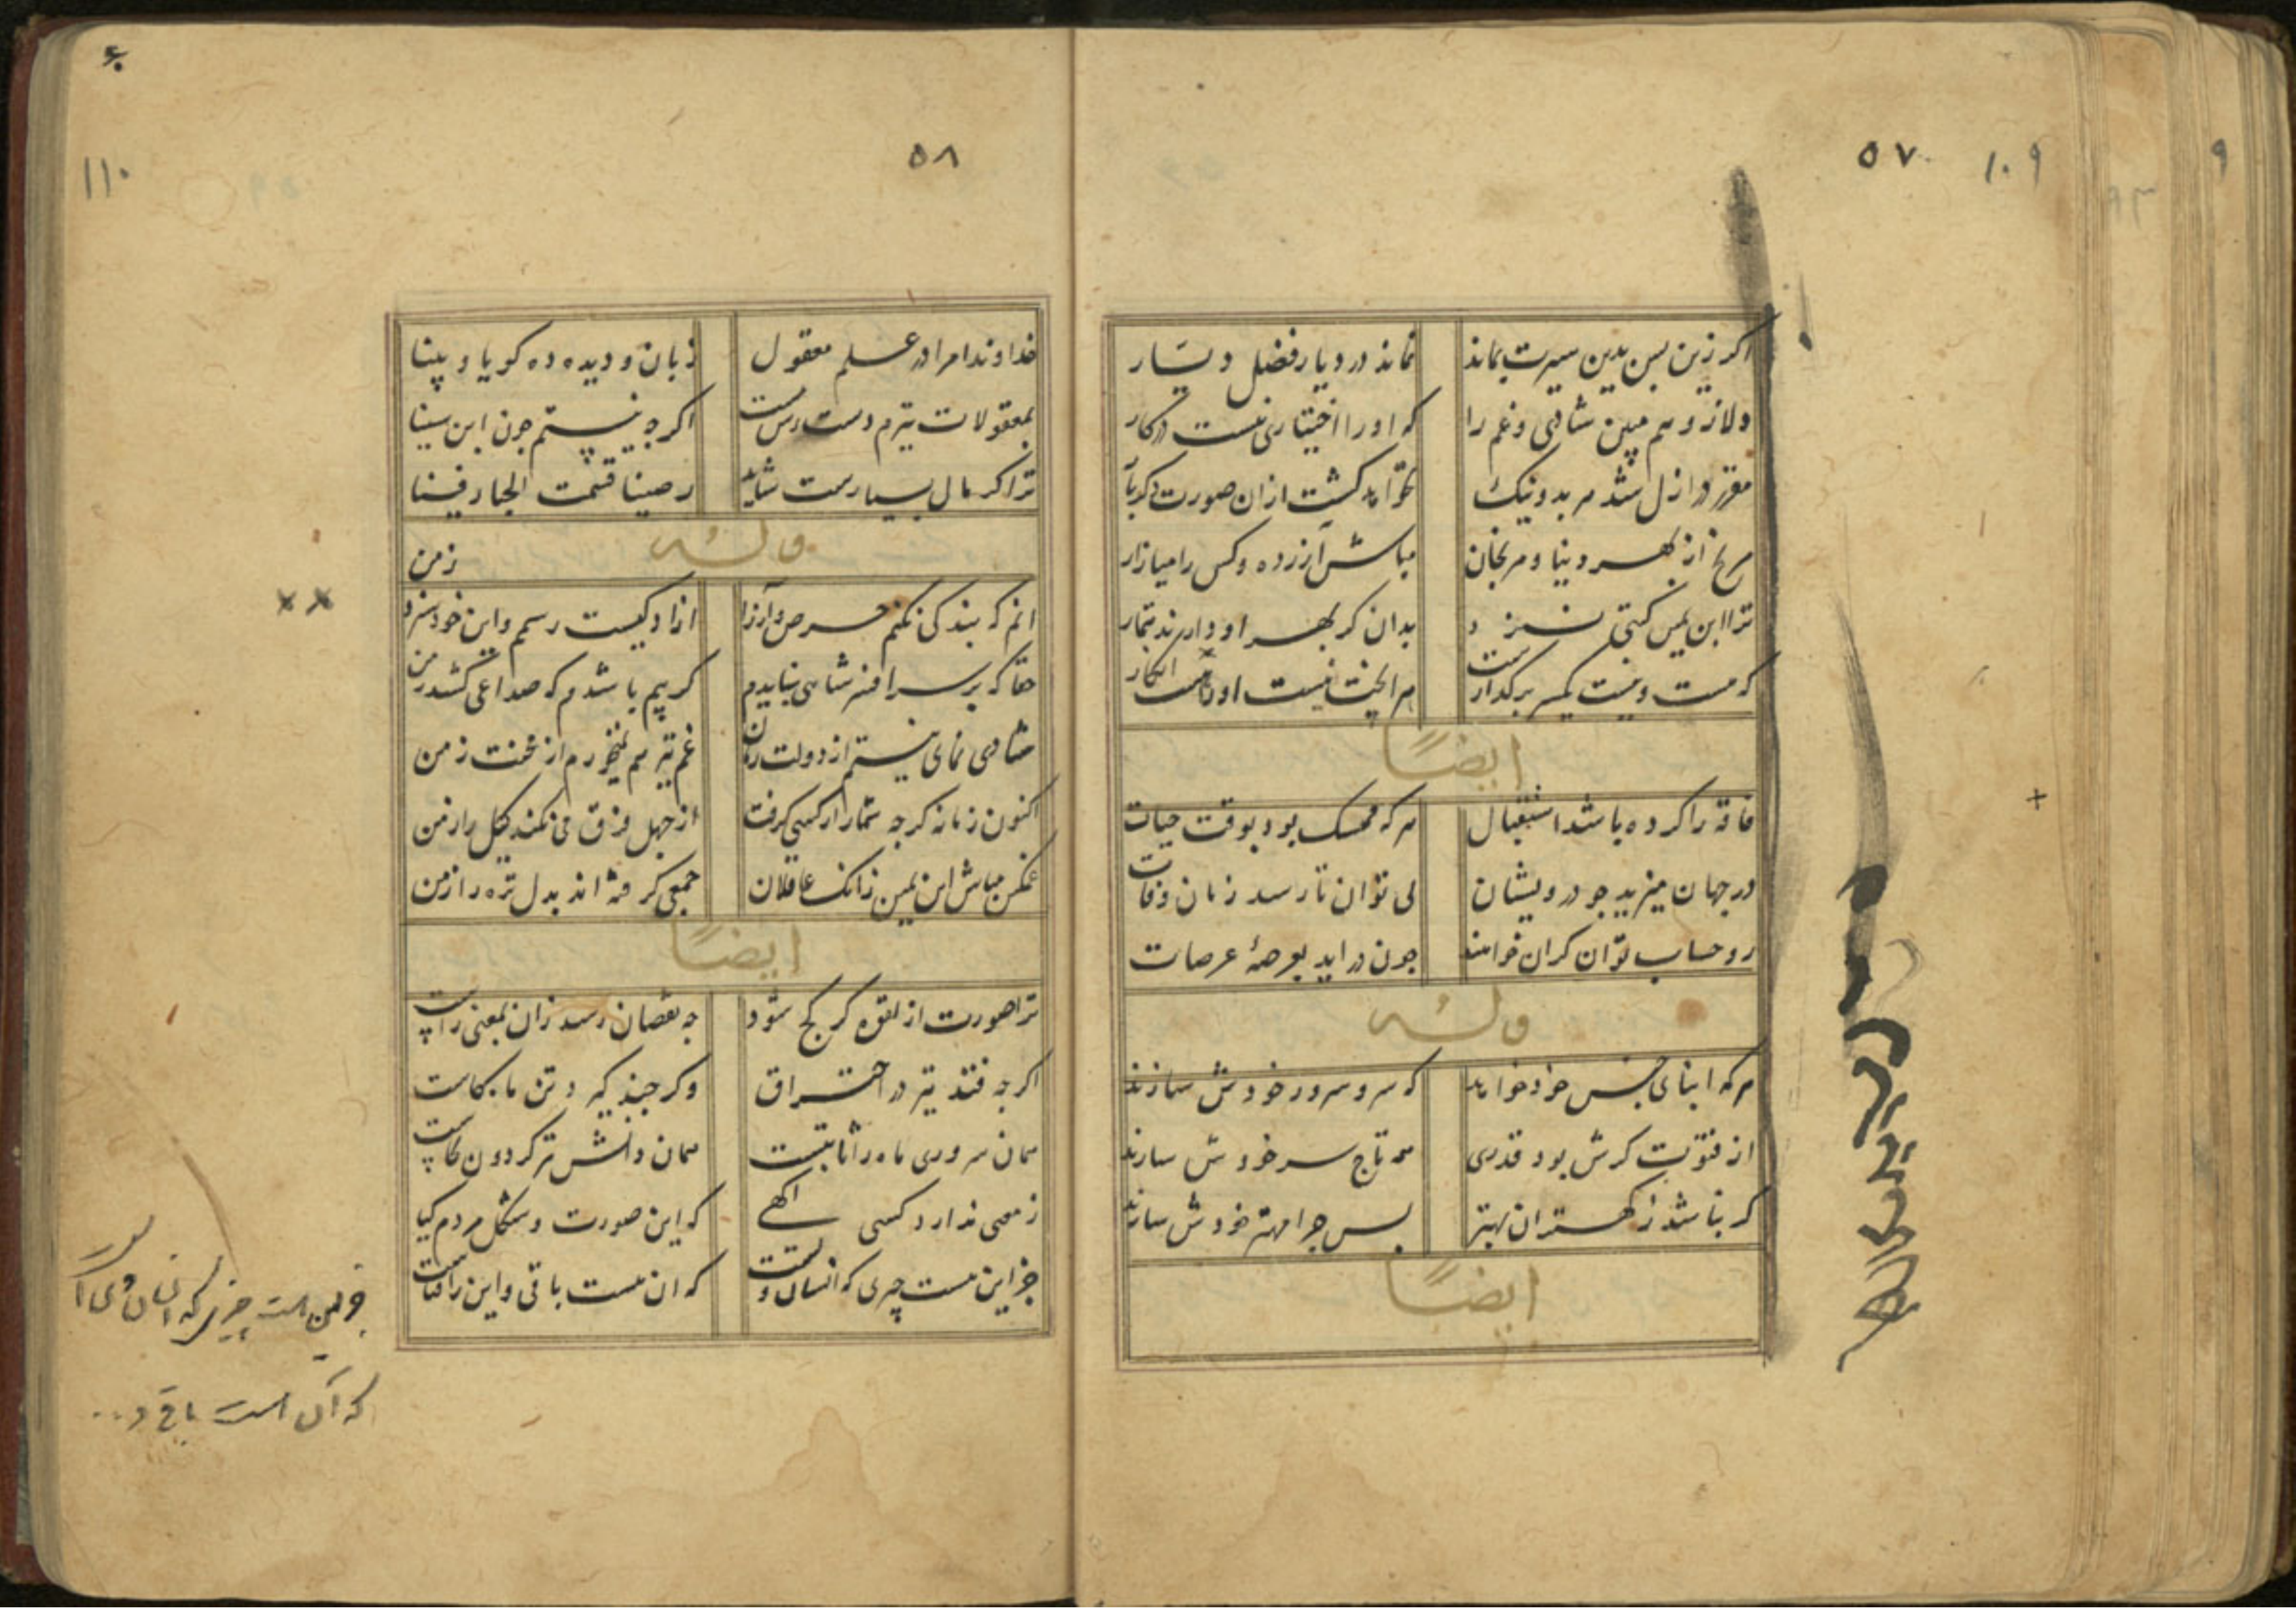 ۵۷ ۱۰۹ ۹
اکر زین پس بدین سیرت بماند نماند در دیار فضل دیّار
دلا زو هم مبین شادی و غم را که او را اختیاری نیست در کار
مقرر در ازل شد هر بد و نیک نخواهد کشت ازان صورت
مرنج از بهر دنیا و مرنجان مباش آزرده و کس را میازار
ترا ابن یمین کیتی بدان کر بهر او دارند تیمار
که هست و نیست یکسر برکذار
ایضًا
هر که ممسک بود بوقت حیات فاقه را کرده باشد استقبال
در جهان میزید جو درویشان تا رسد زمان وفات
رو حساب توان کران خواهند جون در اید بعرصهٔ عرصات
وله
هر که ابنای جنس خود خواهد که سر و سرور خودش سازند
از فتوت کرش بود قدری همه تاج سر خودش سازند
کر نباشد ز کهتران بهتر پس جرا مهتر خودش سازند
ایضًا
۱۱۰ ۵۸
خداوندا مرا در علم معقول زبان و دیده ده کویا و بینا
بمعقولات نیزم دست رس هست اکرجه نیستم جون ابن سینا
ترا کر مال بسیارست شاید رضینا قسمت الجبار فینا
وله
انم که بندکی نکنم حرص و آز را ازادکیست رسم و این خود سزد ز من
حقا که بر سر افسر شاهی نبایدم کر بیم باشدم که صداعی کشد ز من
شادی نمای نیستم از دولت زمان غم نیز هم نمیخورم از محنت زمن
اکنون زمانه کرجه شمار از کسی کرفت از جهل فرق می نکند
غمکین مباش ابن یمین زانک عاقلان جمعی کرفته اند بدل تره را زمن
ایضًا
ترا صورت از لقوه کر کج شود جه نقصان رسد زان بمعنی راست
اکرجه فتد تیر در احتراق وکر جند کیرد تن ماه کاست
همان سروری ماه را ثابتست همان دانش تیر کردون بجاست
ز معنی ندارد کسی اکهی که این صورت و شکل مردم
جز این هست چیزی که انسان که ان هست باقی و این را فناست
جز این است چیزی که انسان
که آن است باقی و...